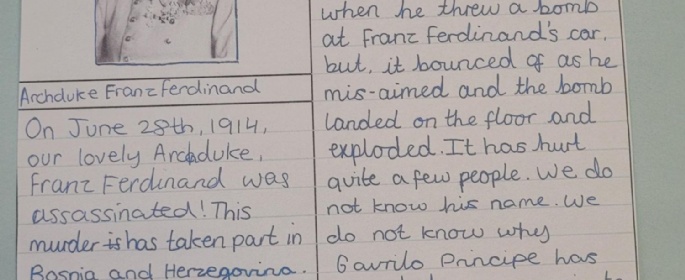 Archduke Franz Ferdinand
On June 28th, 1914,
our lovely Archduke,
Franz Ferdinand was
assassinated! This
murder is has taken part in
Bosnia and Herzegovina.
when he threw a bomb
at Franz Ferdinand's car,
but, it bounced of as he
mis-aimed and the bomb
landed on the floor and
exploded. It has hurt
quite a few people. We do
not know his name. We
do not know why
Gavrilo Principe has